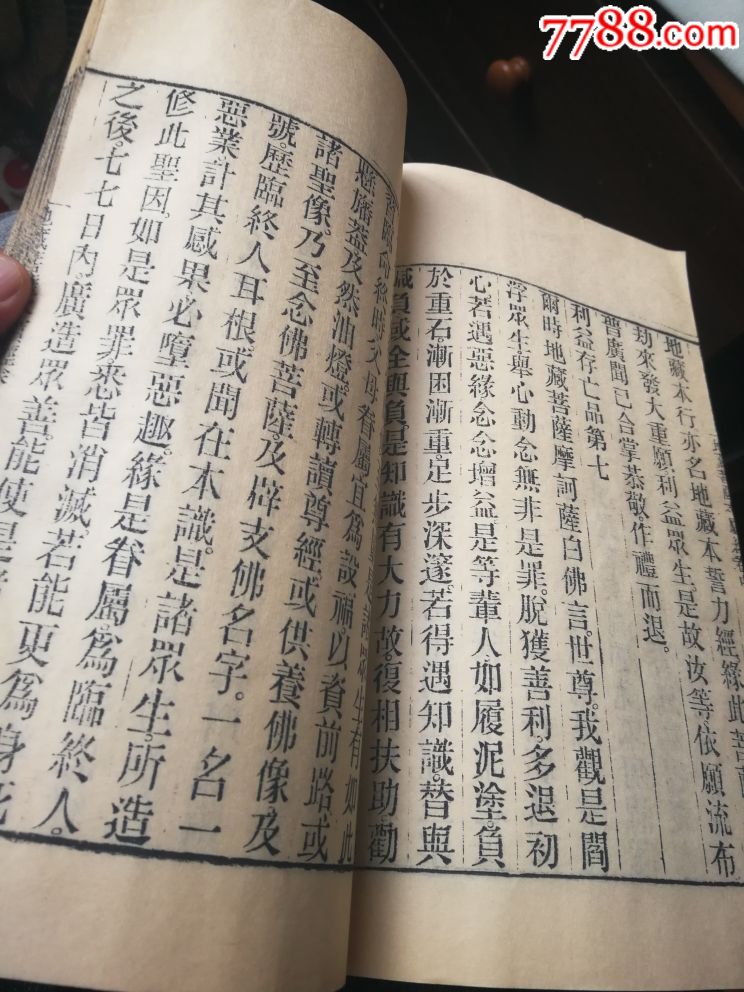 7788.com
地藏本行亦名地藏本誓力經緣此菩薩
劫來發大重願利益眾生是故汝等依願流布
普廣聞已合掌恭敬。作禮而退。
利益存亡品第七
爾時地藏菩薩摩訶薩白佛言。世尊。我觀是閻
浮眾生。舉心動念無非是罪。脫獲善利。多退初
心若遇惡緣念念增益是等輩人如履泥塗。負
於重石。漸困漸重。足步深邃。若得遇知識。替與
減負或全與負。是知識有大力故。復相扶助。勸
臨終時父母眷屬宜為設福。以資前路或
懸旛蓋及然油燈或轉讀尊經或供養佛像及
諸聖像。乃至念佛菩薩。及辟支佛名字。一名一
號。歷臨終人耳根。或聞在本識。是諸眾生。所造
惡業計其感果必墮惡趣。緣是眷屬為臨終人。
修此聖因。如是眾罪悉皆消滅。若能更為身死
之後。七七日內。廣造眾善。能使是